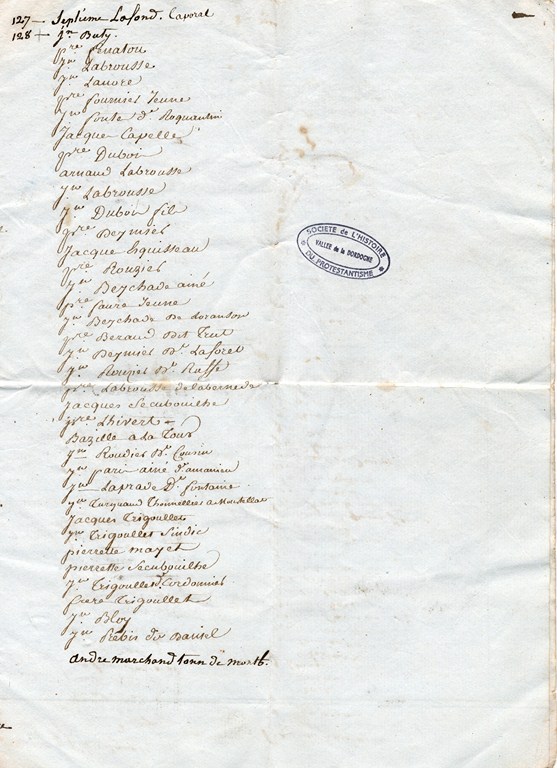 127 — Septieme Lafond. Caporal
128 + jn Buty.
pre
jn Labrousse
jn Lanore
pre fournier Jeune
jn fonte dt Roquantin
Jacque Capelle
pre Duboin
arnaud Labrousse
jn Labrousse
jn Duboin fils
pre Deymier
Jacque Esquisseau
pre Rouzier
jn Beychade ainé
pre faure Jeune
jn Beychade De
pre Beraud Dit Trut
jn Deymier Dt Laforet
jn Rouzier Dt Raffe
pre Labrousse delabernede
Jacques Secubouilhe
pre Lhivert
Bazille a La Tour
jn Roudier Dt Cousin
jn pari ainé dt
jn Laprade Dt fontaine
jn
Jacques Trigoullet
jn Trigoullet Sindic
pierrette mayet
pierrette Secubouilhe
jn Trigoullet Cordonnier
frere Trigoullet
jn Bloy
jn Rebis
andre marchand tonn de montb.
SOCIETE de L'HISTOIRE
VALLEE de la DORDOGNE
DU PROTESTANTISME